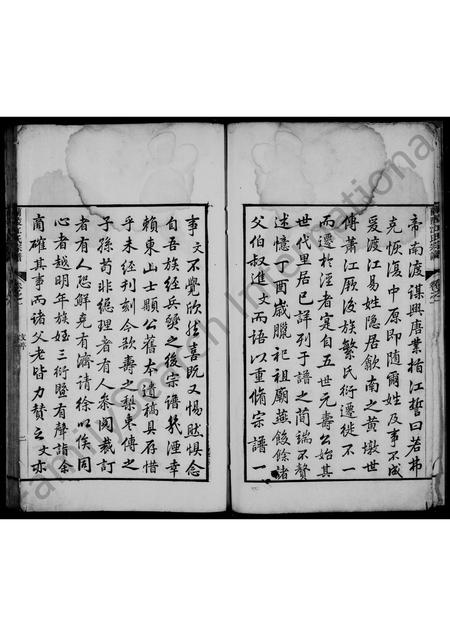 帝南渡謀興唐業楫江誓曰若弗
克恢復中原即隨爾姓及事不成
爰渡江易姓隱居歙南之黄墩世
傳蕭江厥後族繁氏衍遷徙不一
而遷於涇者寔自五世元壽公始其
世代里居已詳列于譜之簡端不贅
述憶酉歲臘祀祖廟燕餕餘諸
父伯叔進文而語以重脩宗譜一
事文不覺欣然喜既又惕然懼念
自吾族經兵燹之後宗譜幾湮幸
賴東山士顯公舊本遺稿具存惜
乎未經刊刻今欲壽之梨棗傳之
子孫苟非總理者有人叅閱裁訂
者有人恐鮮克有濟請徐以俟同
心者越明年族姪三衍暨有聲詣余
商確其事而諸父老皆力賛之文亦
FamilySearch International